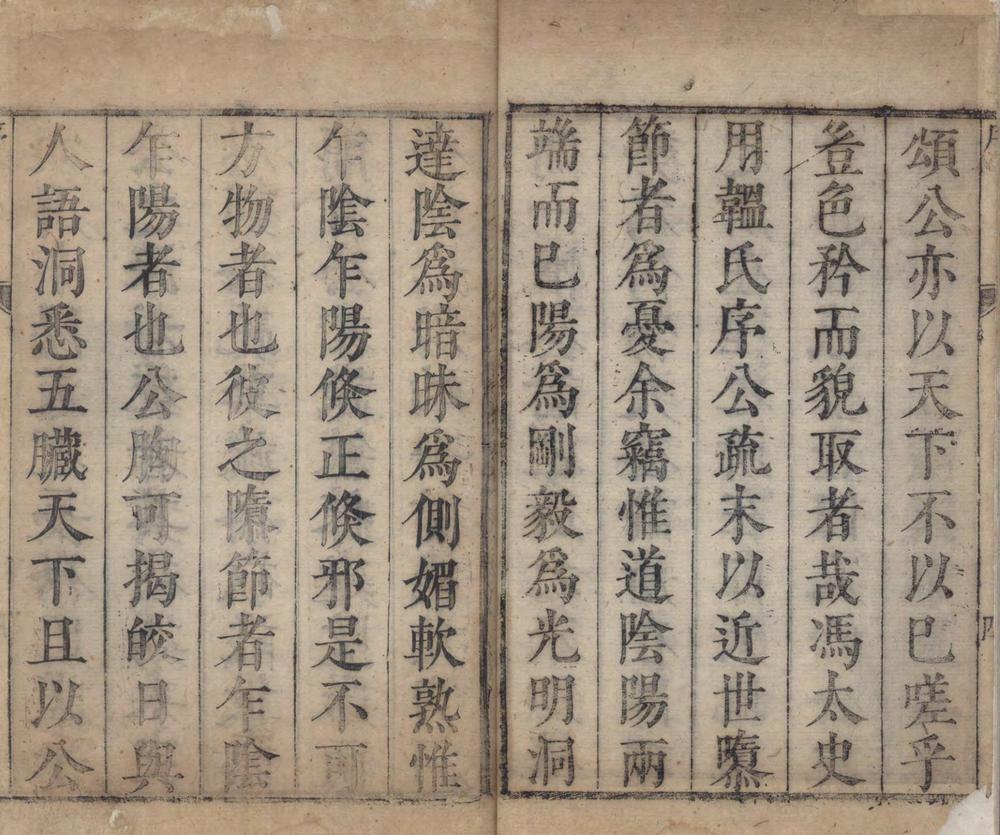 頌公亦以天下不以已嗟乎
豈色矜而貌取者哉馮太史
用韞氏序公疏末以近世隳
節者為憂余竊惟道陰陽兩
端而已陽為剛毅為光明洞
達陰為暗昧為側媚軟熟惟
乍陰乍陽倏正倏邪是不可
方物者也彼之隳節者乍陰
乍陽者也公胸可揭皎日與
人語洞悉五臟天下且以公